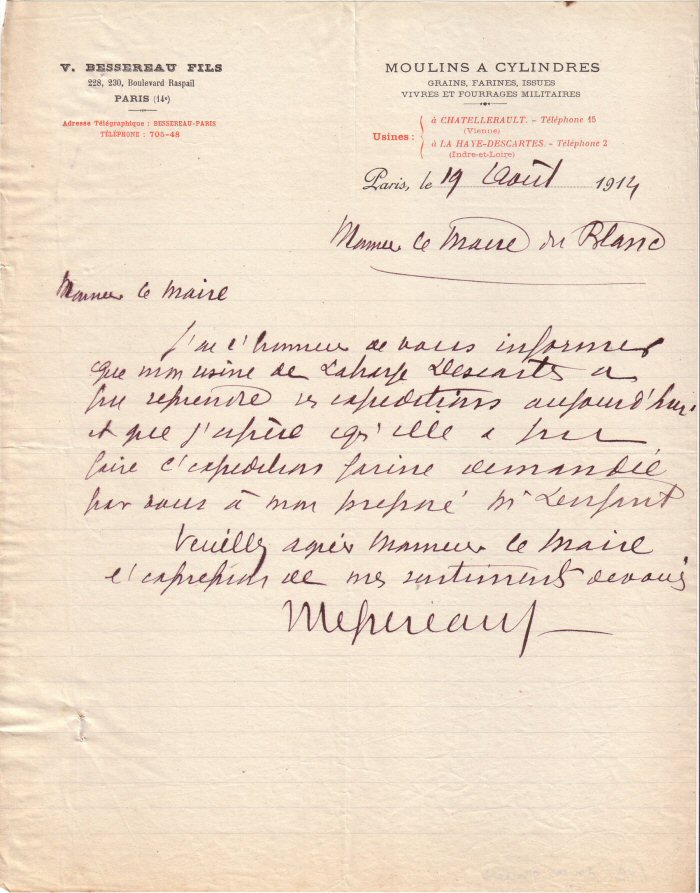 V. BESSEREAU FILS
228, 230, Boulevard Raspail
PARIS (14e)
Adresse Télégraphique : BESSEREAU-PARIS
TÉLÉPHONE : 705-48
MOULINS A CYLINDRES
GRAINS, FARINES, ISSUES
VIVRES ET FOURRAGES MILITAIRES
Usines :
à CHATELLERAULT. - Téléphone 15
(Vienne)
à LA HAYE-DESCARTES. - Téléphone 2
(Indre-et-Loire)
Paris, le 19 Août 1914
Monsieur le Maire du Blanc
Monsieur le Maire
J'ai l'honneur de vous informer
que mon usine de Lahaye Descartes a
pu reprendre ses expéditions aujourd'hui
et que j'espère qu'elle a pu
faire l'expédition farine demandée
par vous à mon préposé Mr Lenfant
Veuillez agréer Monsieur le Maire
l'expression de mes sentiments dévoués